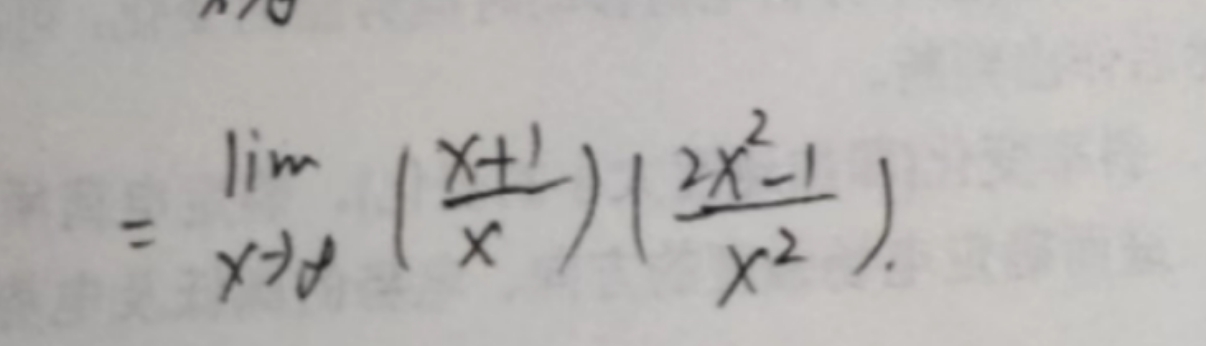 = lim x→∞ (x+1/x)(2x²-1/x²).